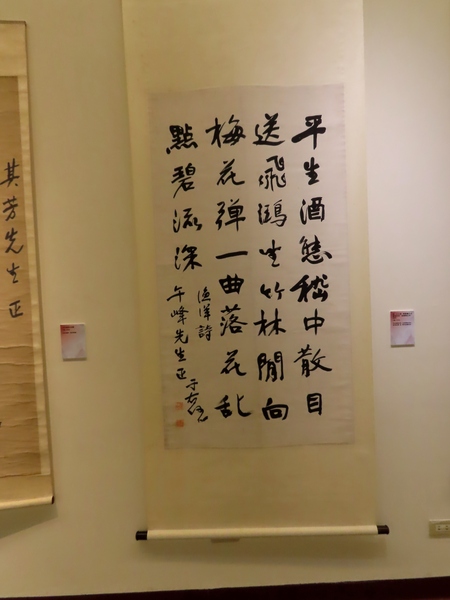 平生酒態嵇中散目
送飛鴻坐竹林閒向
梅花彈一曲落花乱
點碧流深
漁洋詩
午峰先生正
于右任
其芳先生正